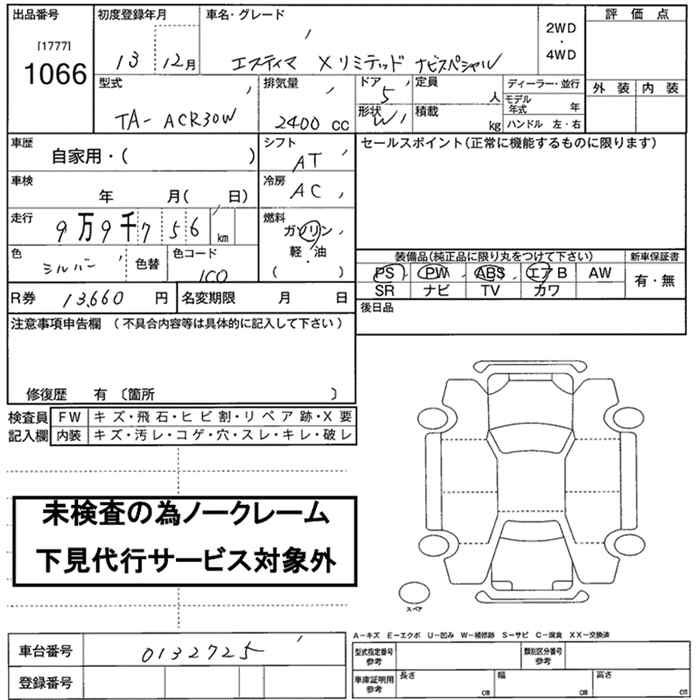 出品番号 初度登録年月 車名・グレード 2WD・4WD 評価点
[1777] 1066 13 12月 エスティマ X リミテッド ナビスペシャル
外装 内装
型式 TA-ACR30W 排気量 2400 CC ドア 5 形状 W 定員 人 積載 kg ディーラー・並行
モデル年式 年
ハンドル 左・右
車歴 自家用・( ) シフト AT セールスポイント(正常に機能するものに限ります)
車検 年 月( 日) 冷房 AC
走行 9万9千756 km 燃料 ガソリン
軽・油
( )
色 シルバー 色替 色コード 1C0
装備品(純正品に限り丸をつけて下さい) 新車保証書
PS PW ABS エアB AW 有・無
SR ナビ TV カワ
R券 13,660 円 名変期限 月 日 後日品
注意事項申告欄 (不具合内容等は具体的に記入して下さい)
修復歴 有 〔箇所 〕
検査員 FW キズ・飛石・ヒビ割・リペア跡・X要
記入欄 内装 キズ・汚レ・コゲ・穴・スレ・キレ・破レ
未検査の為ノークレーム
下見代行サービス対象外
スペア
A−キズ E−エクボ U−凹み W−補修跡 S−サビ C−腐食 XX−交換済
車台番号 0132725 型式指定番号 参考 類別区分番号 参考
登録番号 車庫証明用 参考 長さ cm 幅 cm 高さ cm